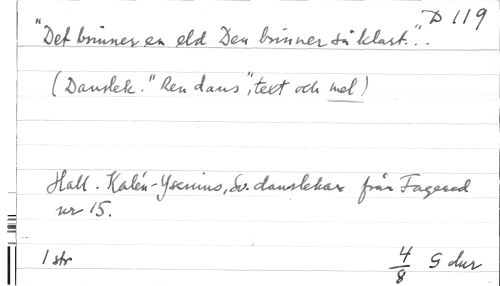 D 119
"Det brinner en eld Den brinner så klart."..
(Danslek. "Ren dans", text och mel)
Hall. Kalén-Ysenius, Sv. danslekar från Fagered
nr 15.
1 str
4/8 G dur